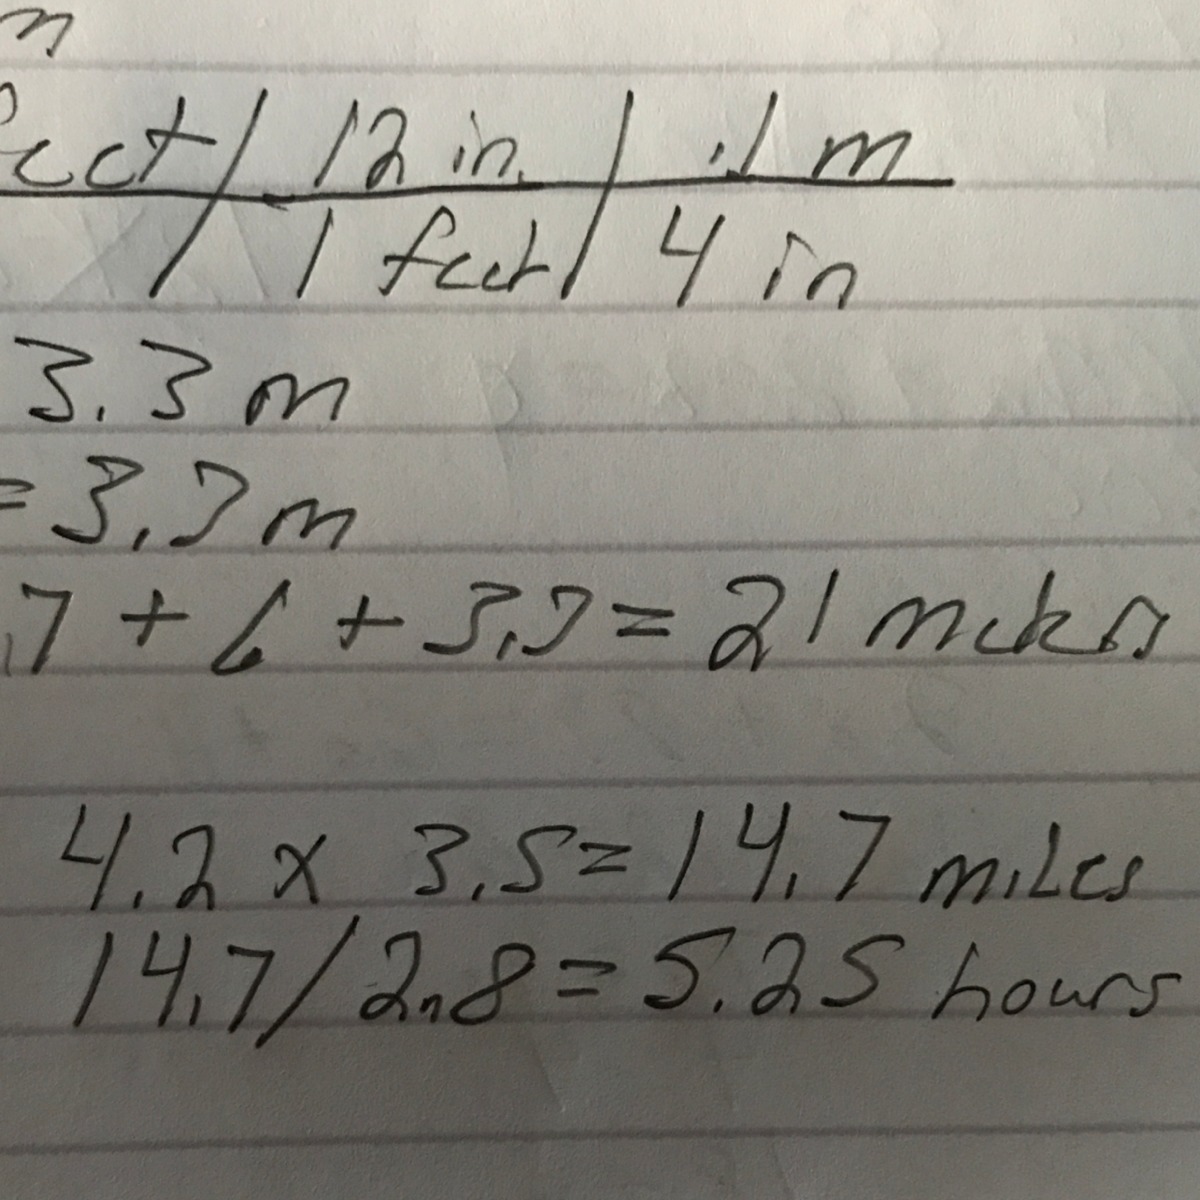 m
feet / 12 in. / .1 m
/ 1 feet / 4 in
3.3 m
= 3.3 m
.7 + 6 + 3.3 = 21 meters
4.2 x 3.5 = 14.7 miles
14.7 / 2.8 = 5.25 hours